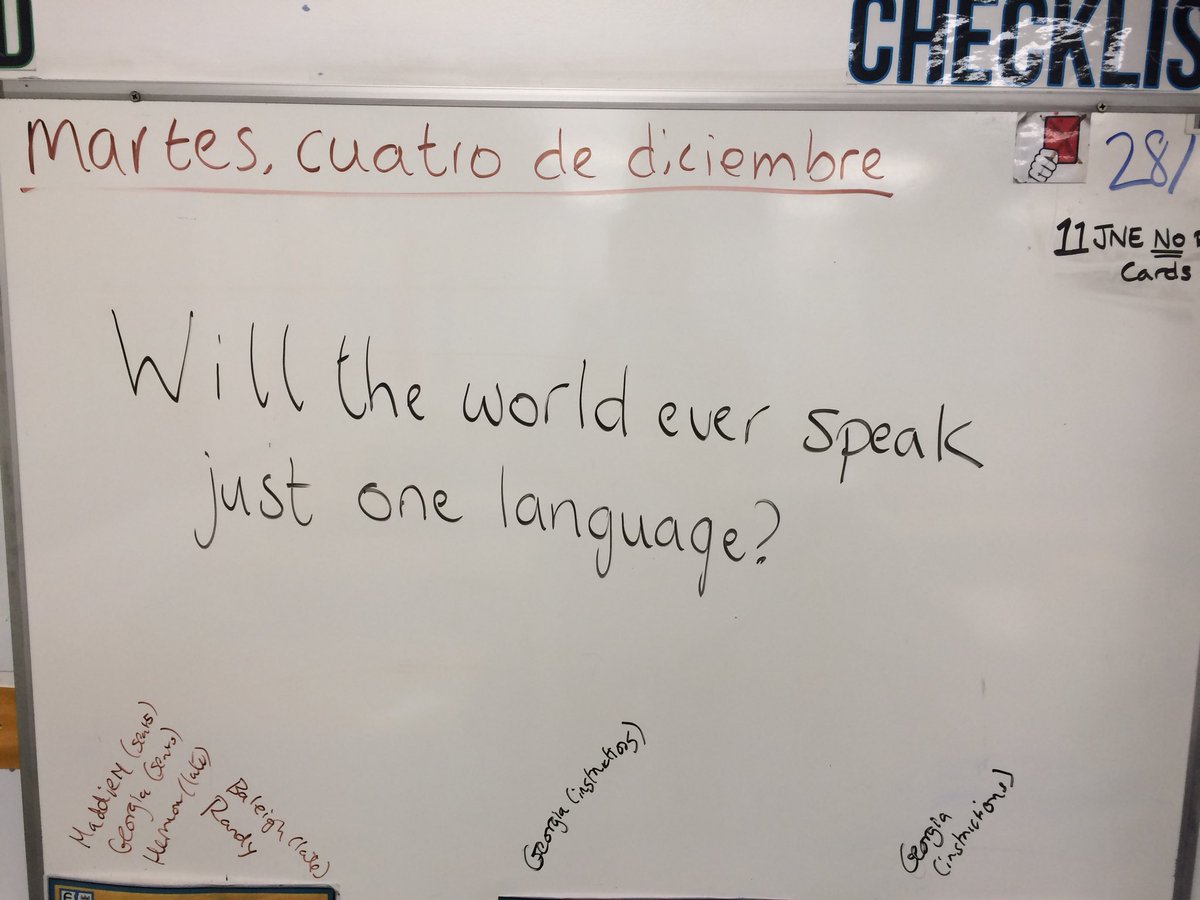 CHECKLIS
Martes, cuatro de diciembre
28/
11 JNE No
Cards
Will the world ever speak
just one language?
Maddie M (seats)
Georgia (seats)
(late)
Raleigh (late)
Randy
Georgia (instructions)
Georgia
(instructions)